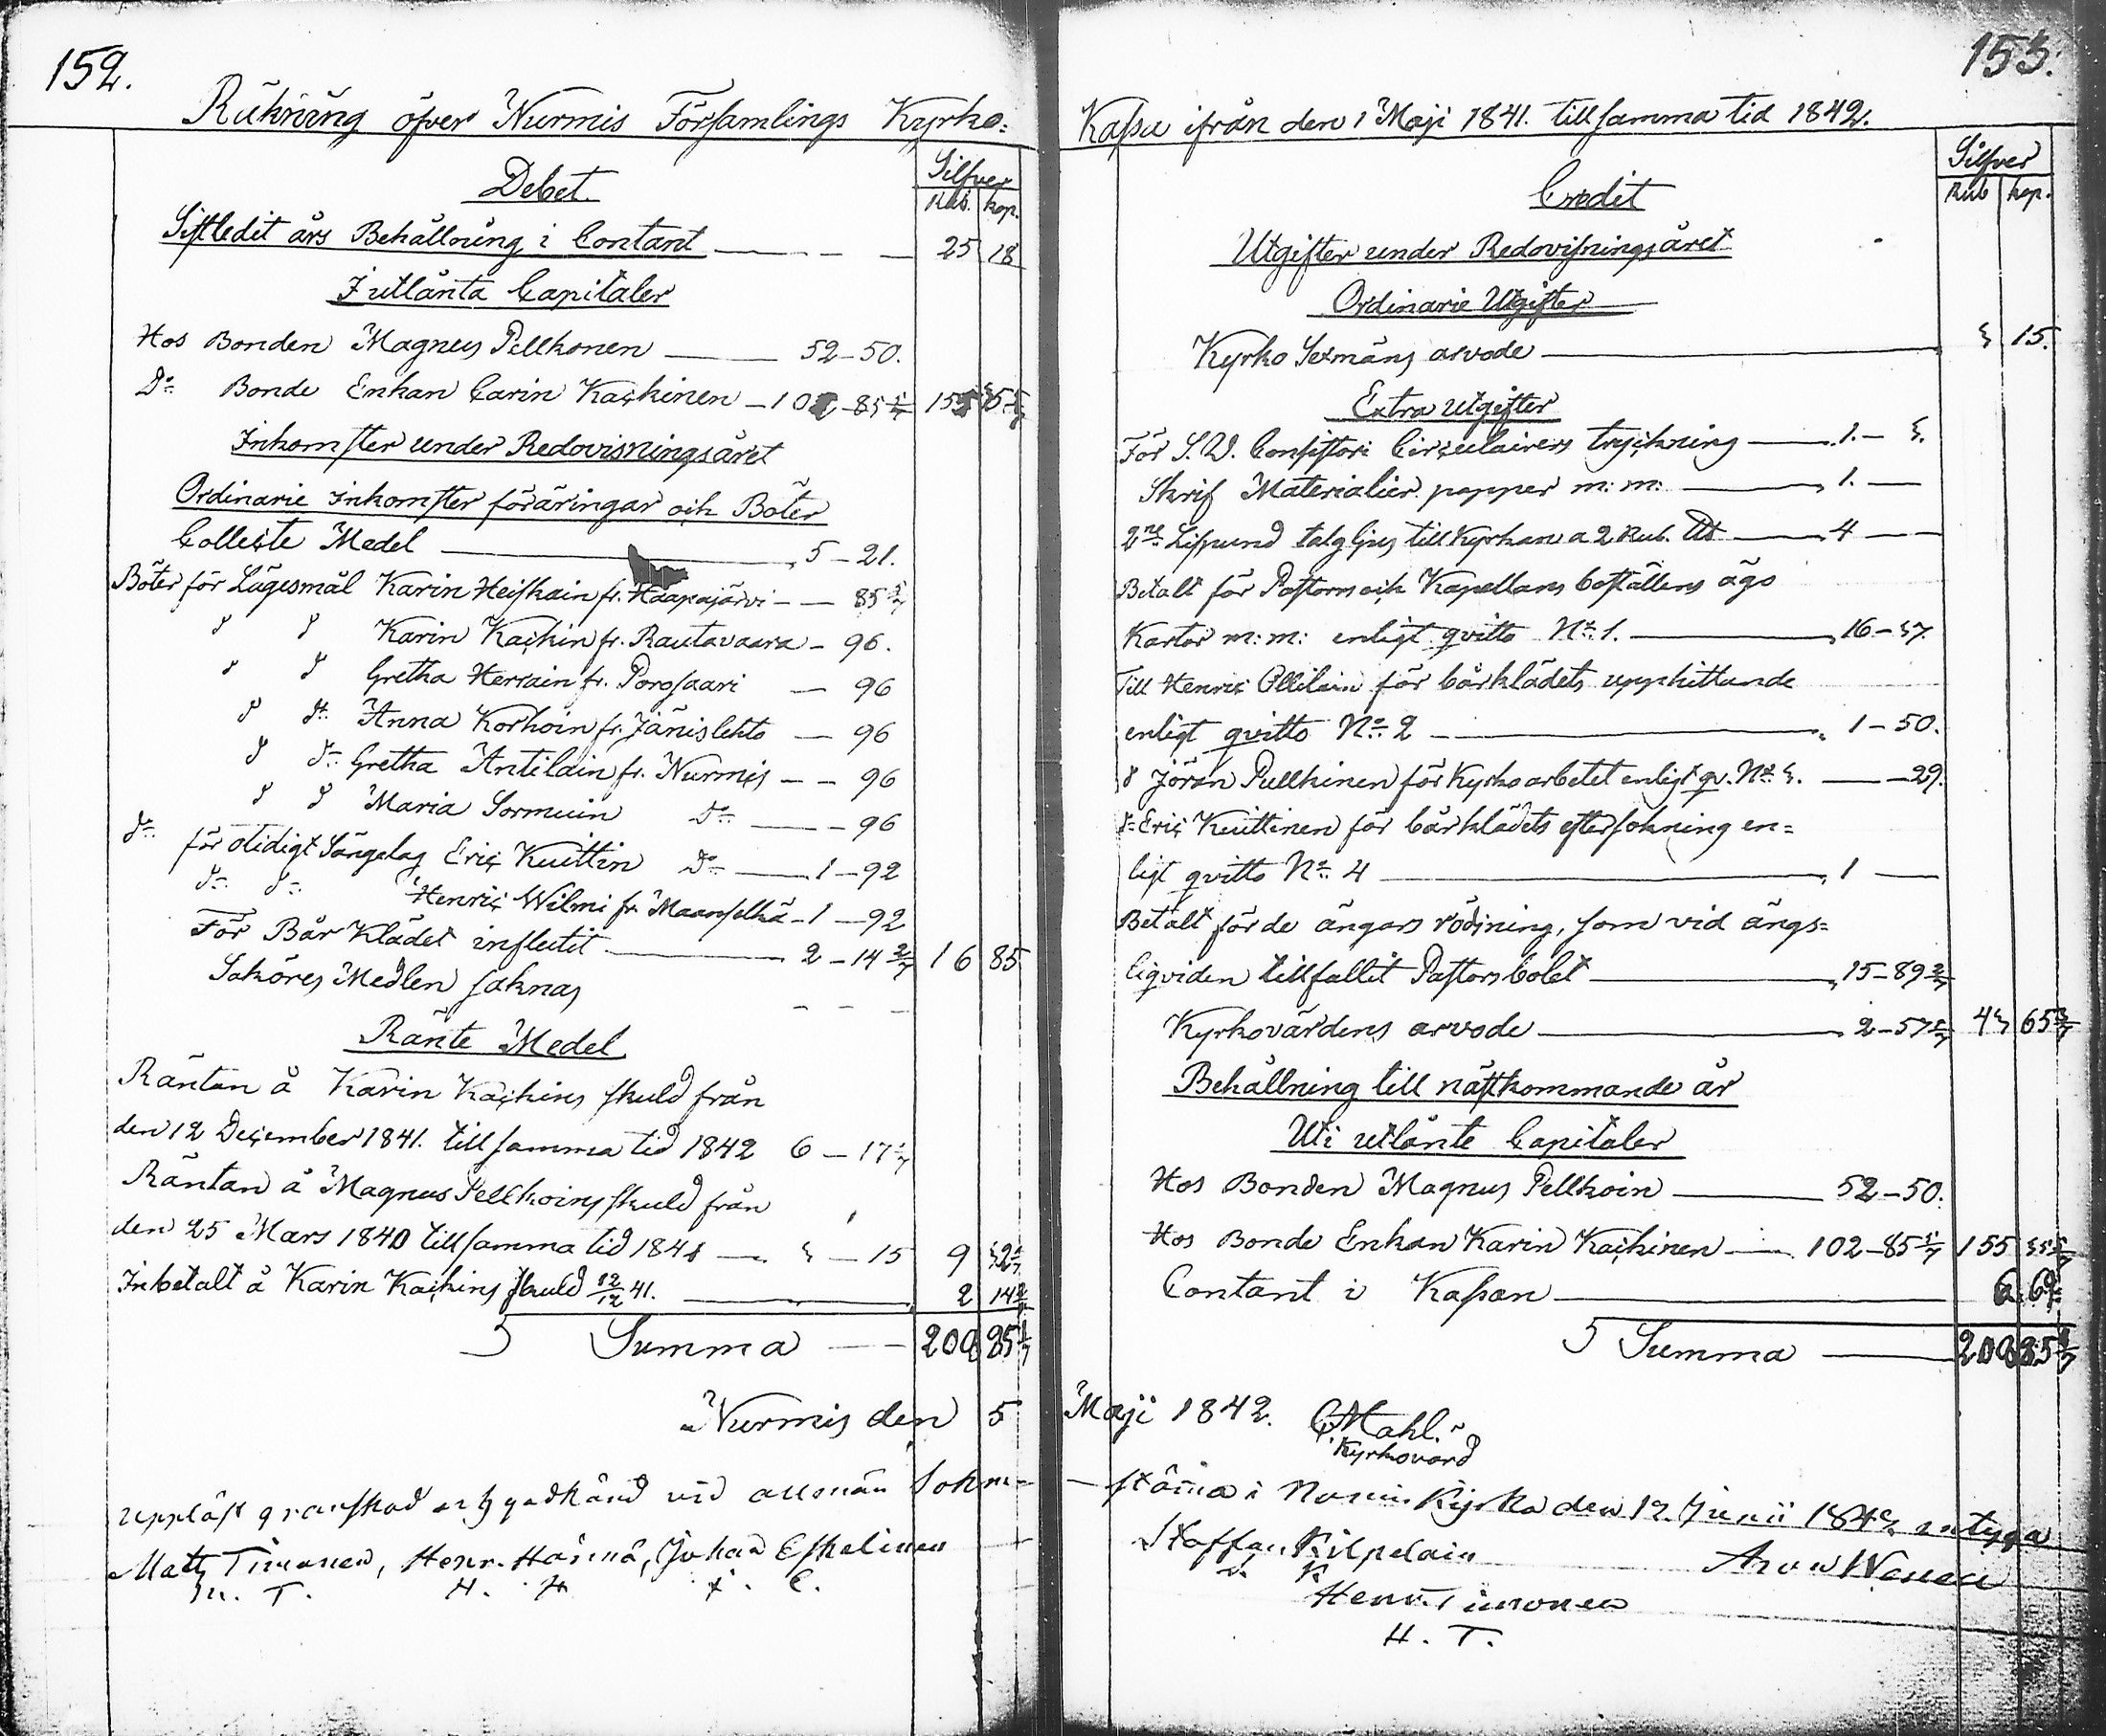 152.
Räkning öfver Nurmis Församlings Kyrko=
Debet.
Silfver
Rub. kop.
Sistledit års Behållning i Contant — 25 18
I utlånta Capitaler
Hos Bonden Magnus Pellkonen — 52–50.
Do Bonde Enkan Carin Kackinen – 102–85 5/7 155 35 5/7
Inkomster under Redovisningsåret
Ordinarie inkomster föräringar och Böter
Collecte Medel — 5–21.
Böter för Lägesmål Karin Heiskain fr. Haapajärvi — 85 5/7
d d Karin Kackin fr. Rautavaara – 96.
d d Gretha Herrain fr. Porosaari — 96
d do Anna Korhoin fr. Jänislehto — 96
d do Gretha Antilain fr. Nurmis — 96
d d Maria Sormuin Do — 96
do för otidigt Sängelag Eric Kuittin Do — 1–92
do do Henric Wilmi fr. Maanselkä – 1–92
För Bår Klädet influtit — 2–14 2/7 16 85
Saköres Medlen saknas — — —
Ränte Medel
Räntan å Karin Kackins skuld från
den 12 December 1841. till samma tid 1842 6–17 1/7
Räntan å Magnus Pellkoins skuld från
den 25 Mars 1840 till samma tid 1841 — 3–15 9 32 1/7
Inbetalt å Karin Kackins skuld 12/12 41. — 2 14 2/7
Summa — 208 85 1/7
Nurmis den 5
Uppläst granskad och godkänd vid allmän Sokne-
Matts Timonen, Henr. Hannä, Johan Eskelinen
M. T. H. H. J. E.
153.
Kassa ifrån den 1 Maji 1841. till samma tid 1842.
Credit
Silfver
Rub kop.
Utgifter under Redovisningsåret
Ordinarie Utgifter
Kyrko Sexmans arvode — 3 15.
Extra utgifter
För S. V. Consistori Circulairers tryckning — 1.–3.
Skrif Materialier papper m: m: — 1. —
2ne Lispund talg ljus till Kyrkan a 2 Rub. Ld — 4 —
Betalt för Pastorns och Kapellans boställens ägo
Kartor m: m: enligt qvitto No 1. — 16–37
Till Henric Ollilain för bårklädets upphittande
enligt qvitto No 2 — 1–50.
d Jöran Pullkinen för Kyrko arbetet enligt qv. No 3. — 29.
do Eric Kuittinen för bårklädets eftersökning en=
ligt qvitto No 4 — 1 —
Betalt för de ängars rödjning, som vid ängs=
liqviden tillfallit Pastorsbolet — 15–89 2/7
Kyrkovärdens arvode — 2–57 1/7 43 65 3/7
Behållning till nästkommande år
Uti utlånte Capitaler
Hos Bonden Magnus Pellkoin — 52–50.
Hos Bonde Enkan Karin Kackinen — 102–85 5/7 155 35 5/7
Contant i Kassan — 6 69
Summa — 208 85 1/7
Maji 1842. C Mahl.
Kyrkovärd
-stämma i Nurmis Kyrka den 12 Junii 1842 intyga
Staffan Kilpelain
S. K.
Henr. Timonen
H. T.